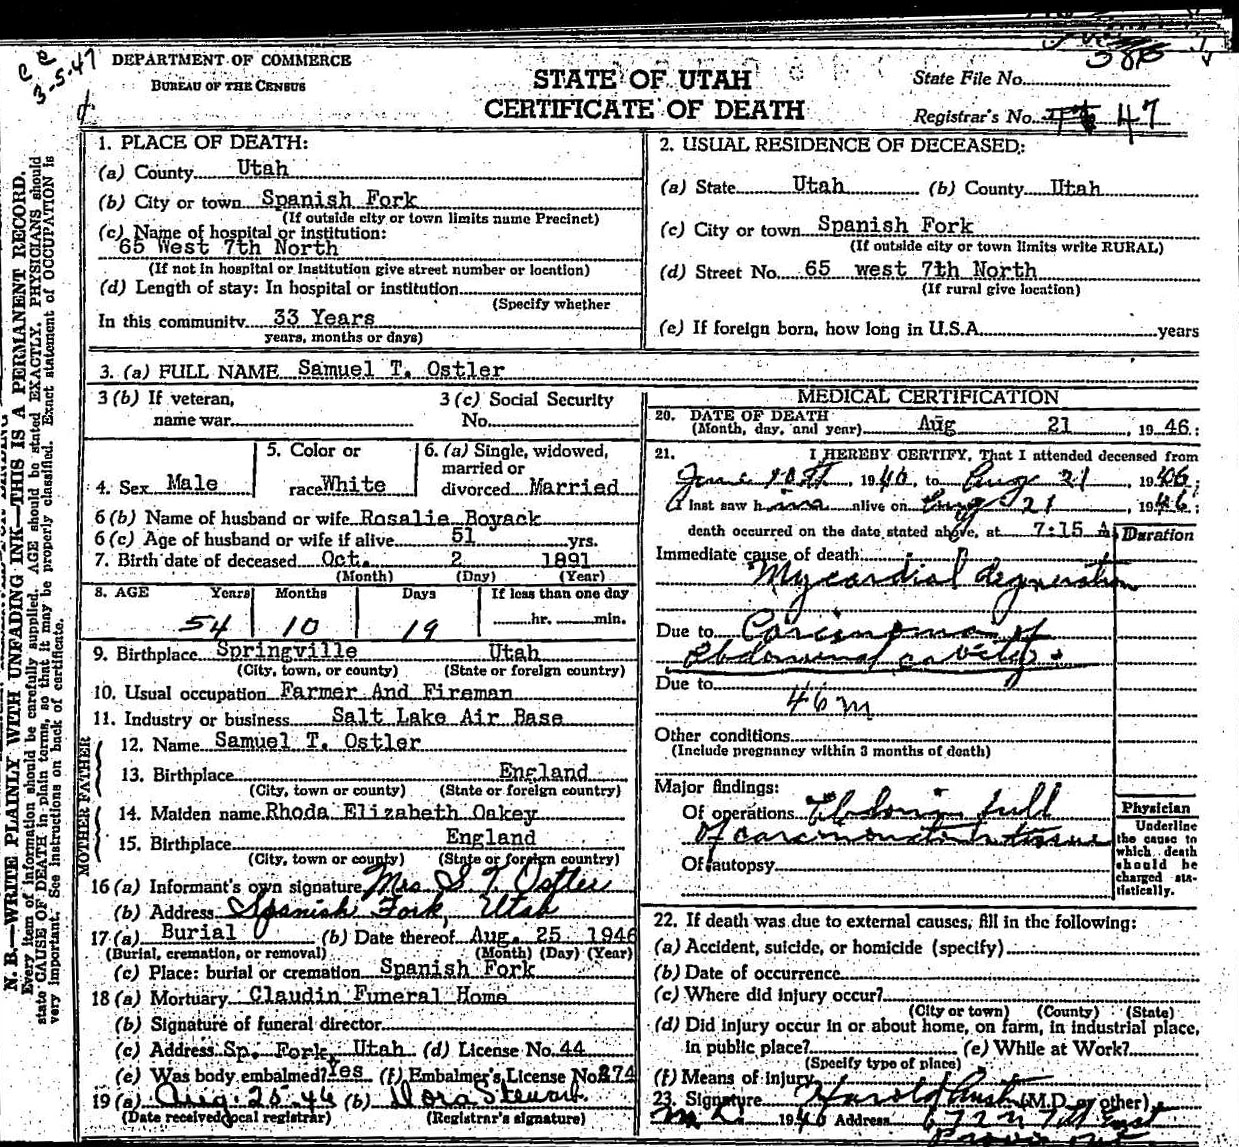 3-5-47
DEPARTMENT OF COMMERCE
BUREAU OF THE CENSUS
STATE OF UTAH
CERTIFICATE OF DEATH
State File No.
Registrar's No. 47
N. B.—WRITE PLAINLY WITH UNFADING INK—THIS IS A PERMANENT RECORD.
Every item of information should be carefully supplied. AGE should be stated EXACTLY. PHYSICIANS should
state CAUSE OF DEATH in plain terms, so that it may be properly classified. Exact statement of OCCUPATION is
very important. See instructions on back of certificate.
1. PLACE OF DEATH:
(a) County Utah
(b) City or town Spanish Fork
(If outside city or town limits name Precinct)
(c) Name of hospital or institution:
65 West 7th North
(If not in hospital or institution give street number or location)
(d) Length of stay: In hospital or institution
(Specify whether
In this community 33 Years
years, months or days)
2. USUAL RESIDENCE OF DECEASED:
(a) State Utah (b) County Utah
(c) City or town Spanish Fork
(If outside city or town limits write RURAL)
(d) Street No. 65 west 7th North
(If rural give location)
(e) If foreign born, how long in U.S.A. years
3. (a) FULL NAME Samuel T. Ostler
3 (b) If veteran, name war
3 (c) Social Security No.
4. Sex Male
5. Color or race White
6. (a) Single, widowed, married or divorced Married
6 (b) Name of husband or wife Rosalie Boyack
6 (c) Age of husband or wife if alive 51 yrs.
7. Birth date of deceased Oct. 2 1891
(Month) (Day) (Year)
8. AGE Years Months Days If less than one day
54 10 19 hr. min.
9. Birthplace Springville Utah
(City, town, or county) (State or foreign country)
10. Usual occupation Farmer And Fireman
11. Industry or business Salt Lake Air Base
FATHER
12. Name Samuel T. Ostler
13. Birthplace England
(City, town or county) (State or foreign country)
MOTHER
14. Maiden name Rhoda Elizabeth Oakey
15. Birthplace England
(City, town or county) (State or foreign country)
16 (a) Informant's own signature Mrs S T Ostler
(b) Address Spanish Fork, Utah
17 (a) Burial (b) Date thereof Aug. 25 1946
(Burial, cremation, or removal) (Month) (Day) (Year)
(c) Place: burial or cremation Spanish Fork
18 (a) Mortuary Claudin Funeral Home
(b) Signature of funeral director
(c) Address Sp. Fork, Utah (d) License No. 44
(e) Was body embalmed? Yes (f) Embalmer's License No. 274
19 (a) Aug. 25-46 (b) Dora Stewart
(Date received local registrar) (Registrar's signature)
MEDICAL CERTIFICATION
20. DATE OF DEATH
(Month, day, and year) Aug 21, 1946;
21. I HEREBY CERTIFY, That I attended deceased from
June, 1946, to Aug 21, 1946;
I last saw him alive on Aug 21, 1946;
death occurred on the date stated above, at 7:15 A
Duration
Immediate cause of death
Mycardial degeneration
Due to Carcinoma of
abdominal cavity
Due to
46 m
Other conditions
(Include pregnancy within 3 months of death)
Major findings:
Of operations full
of
Of autopsy
Physician
Underline
the cause to
which death
should be
charged sta-
tistically.
22. If death was due to external causes, fill in the following:
(a) Accident, suicide, or homicide (specify)
(b) Date of occurrence
(c) Where did injury occur?
(City or town) (County) (State)
(d) Did injury occur in or about home, on farm, in industrial place,
in public place? (e) While at Work?
(Specify type of place)
(f) Means of injury
23. Signature Harold (M.D. or other)
M.D. 1946 Address 672 n 7th East